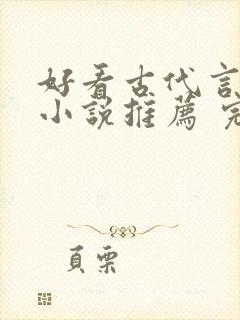 好看古代言
小說推薦 完
頁栗